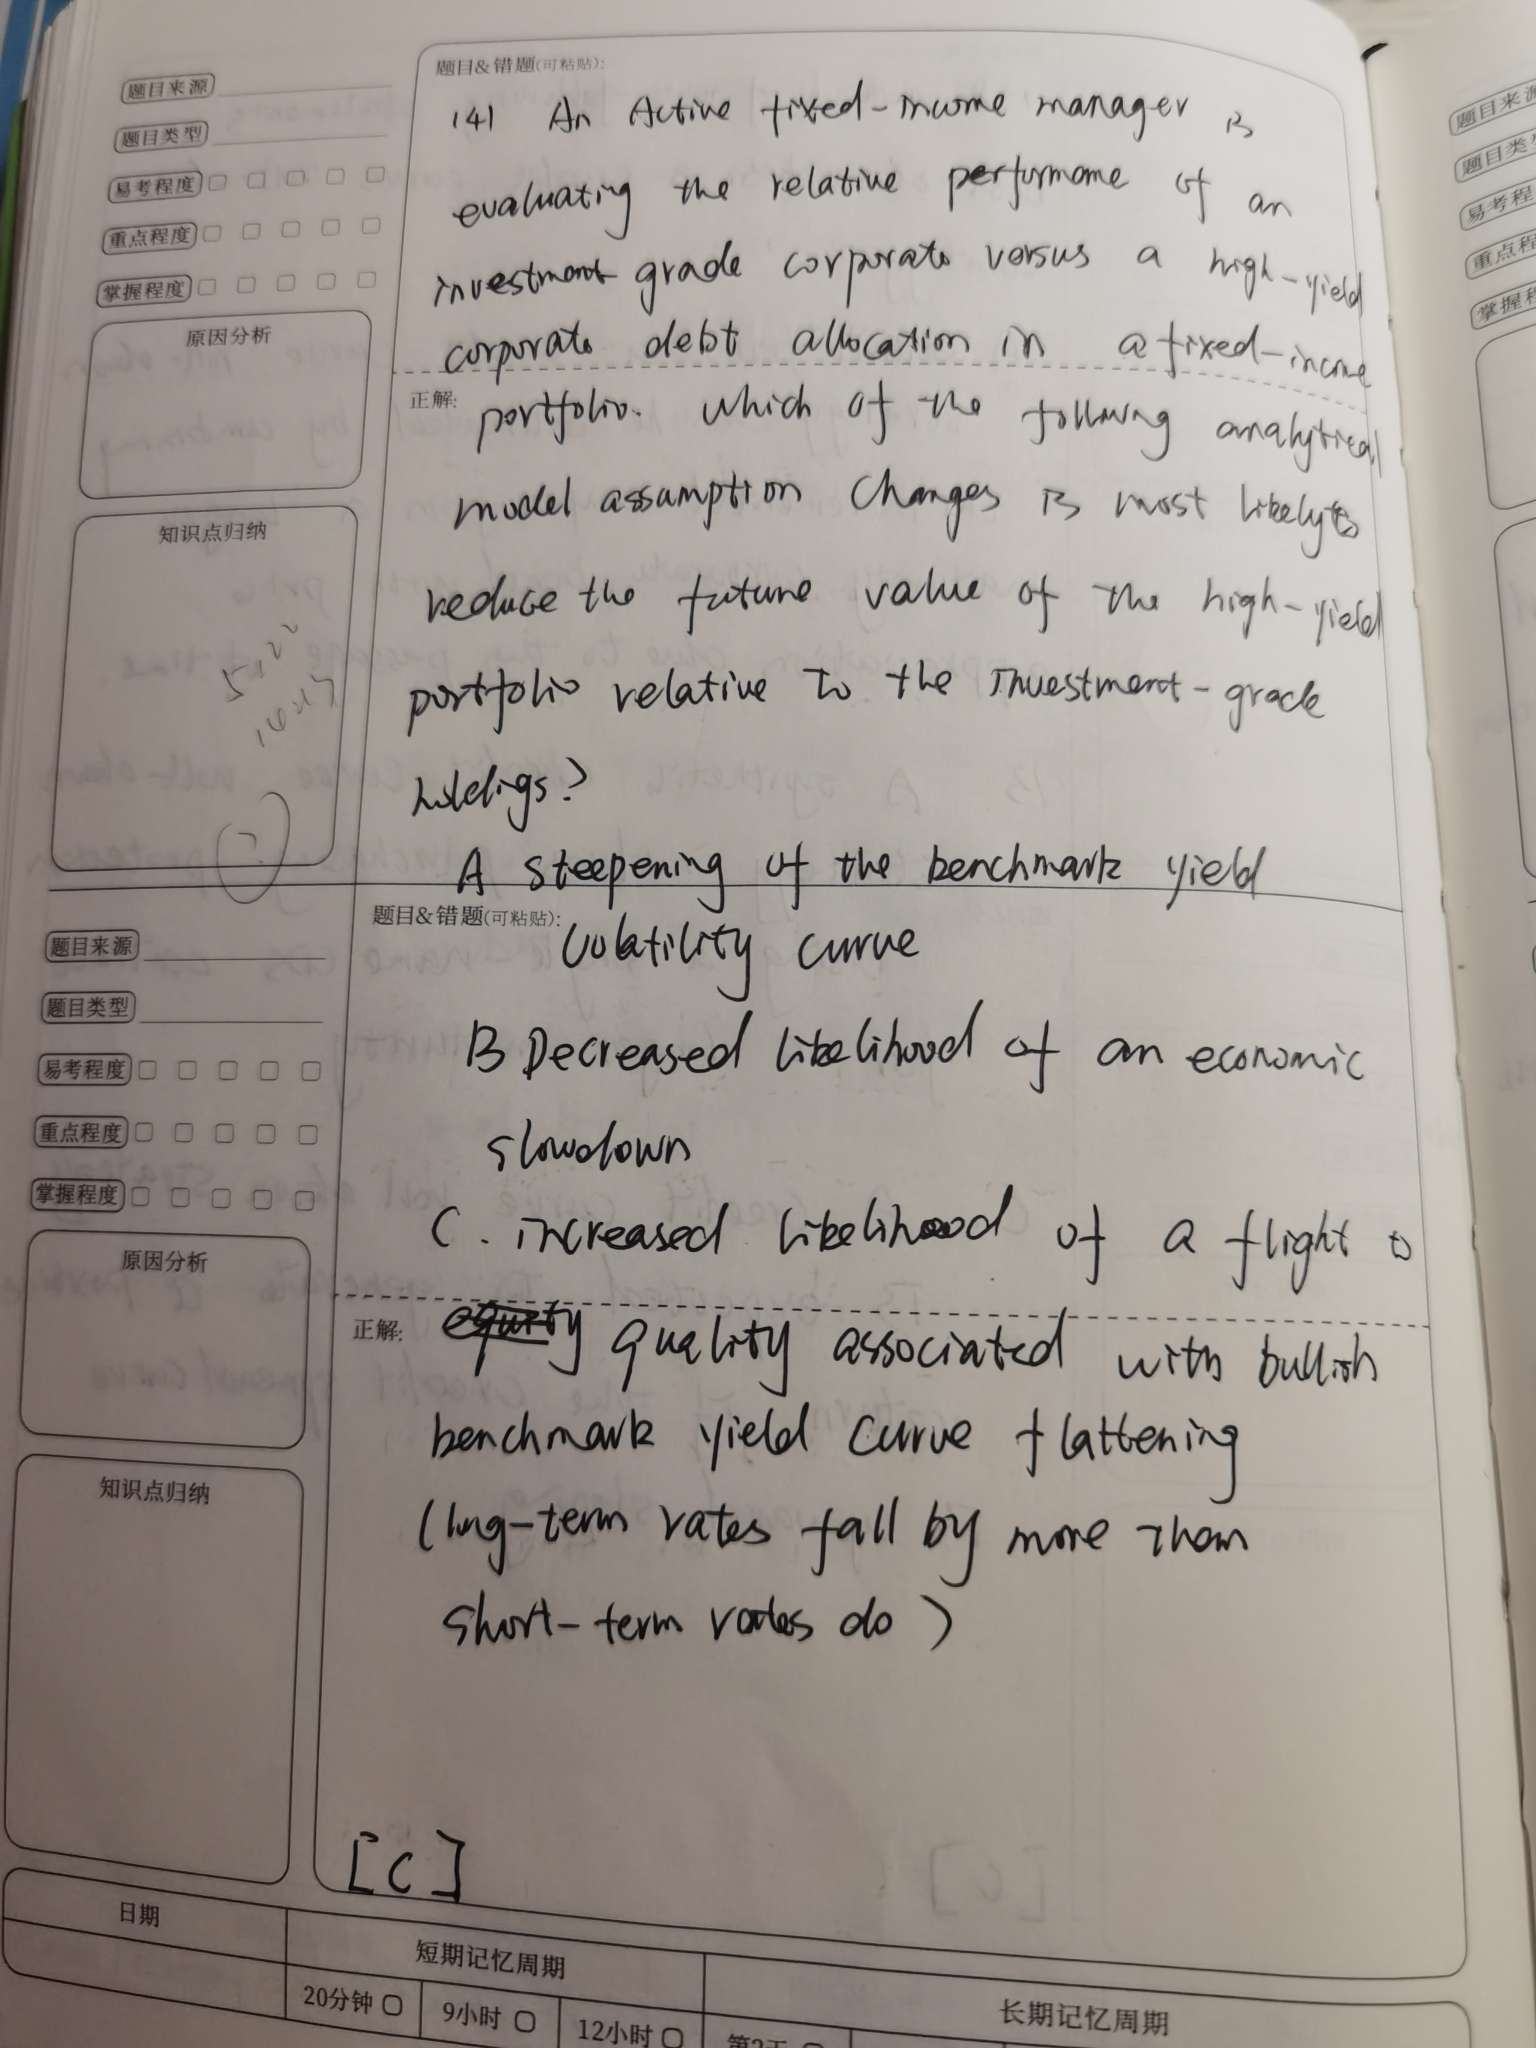 题目来源
题目类型
易考程度
重点程度
掌握程度
原因分析
知识点归纳
题目&错题(可粘贴):
(4) An Active fixed-income manager is
evaluating the relative performance of an
investment grade corporate versus a high-yield
corporate debt allocation in a fixed-income
正解:
portfolio. which of the following analytical
model assumption changes is most likely to
reduce the future value of the high-yield
portfolio relative to the investment-grade
holdings?
A steepening of the benchmark yield
题目&错题(可粘贴):
Volatility curve
B Decreased likelihood of an economic
slowdown
C. increased likelihood of a flight to
正解:
quality associated with bullish
benchmark yield curve flattening
(long-term rates fall by more than
short-term rates do)
[C]
题目来源
题目类型
易考程度
重点程度
掌握程度
原因分析
知识点归纳
日期
短期记忆周期
长期记忆周期
20分钟
9小时
12小时
题目来源
题目类
易考程
重点程
掌握程